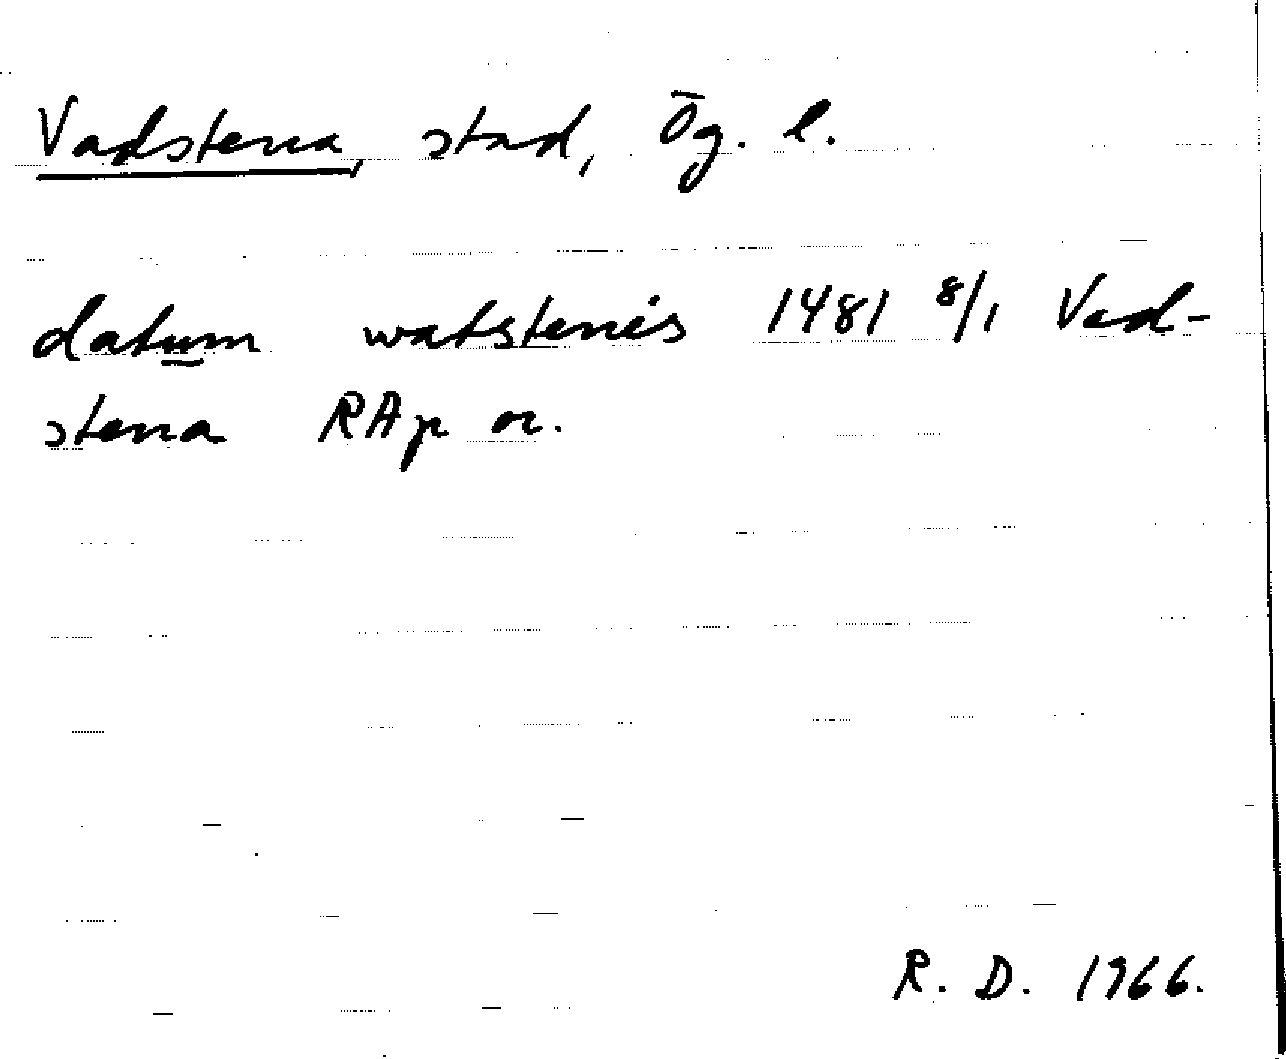 Vadstena, stad, Ög. l.
datum watstenis 1481 8/1 Vad-
stena RAp or.
R. D. 1966.